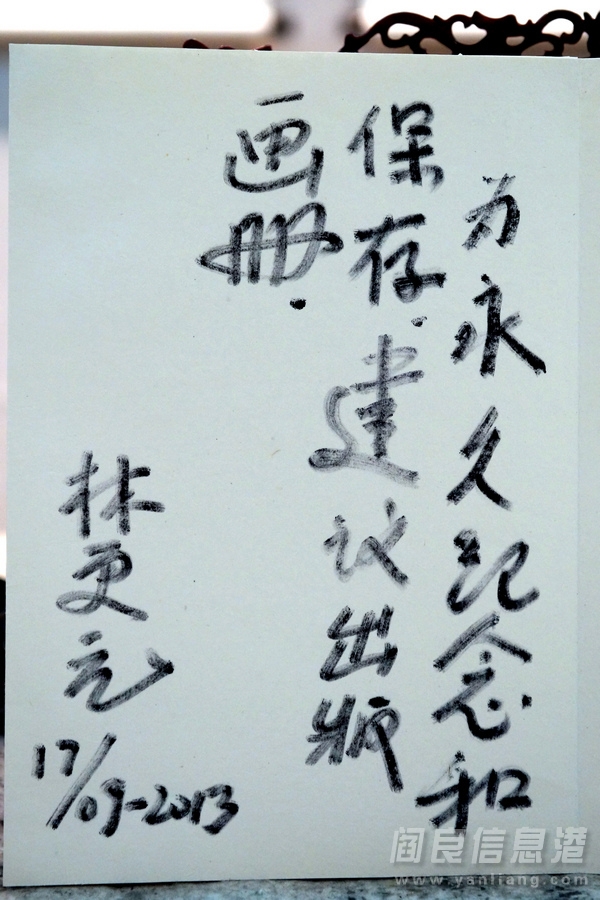 为永久纪念和
保存.建议出版
画册.
林更元
17/09-2013
阎良信息港
www.yanliang.com